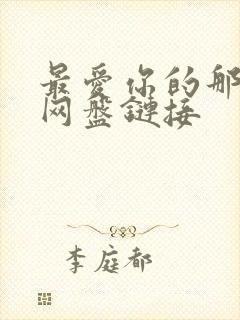 最爱你的那
网盘鏈接
李庭都